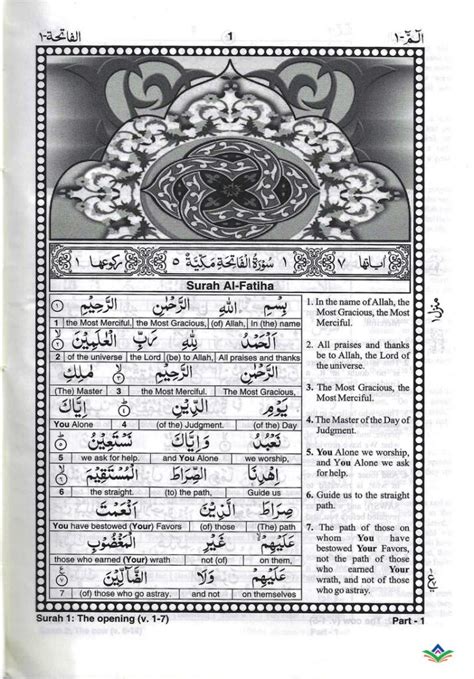 الفاتحة-١ 1 الٓمّٓ-١
اٰیاتها ٧ ١ سُوْرَةُ الْفَاتِحَةِ مَكِّيَّةٌ ٥ رکوعها ١
Surah Al-Fatiha
بِسْمِ اللّٰهِ الرَّحْمٰنِ الرَّحِيْمِ ١
1 the Most Merciful. the Most Gracious, (of) Allah, In (the) name
اَلْحَمْدُ لِلّٰهِ رَبِّ الْعٰلَمِيْنَ ٢
2 of the universe the Lord (be) to Allah, All praises and thanks
الرَّحْمٰنِ الرَّحِيْمِ ٣ مٰلِكِ
(The) Master 3 the Most Merciful. The Most Gracious,
يَوْمِ الدِّيْنِ ٤ اِيَّاكَ
You Alone 4 (of the) Judgment. (of the) Day
نَعْبُدُ وَاِيَّاكَ نَسْتَعِيْنُ ٥
5 we ask for help. and You Alone we worship,
اِهْدِنَا الصِّرَاطَ الْمُسْتَقِيْمَ ٦
6 the straight. (to) the path, Guide us
صِرَاطَ الَّذِيْنَ اَنْعَمْتَ
You have bestowed (Your) Favors (of) those (The) path
عَلَيْهِمْ غَيْرِ الْمَغْضُوْبِ
those who earned (Your) wrath not (of) on them,
عَلَيْهِمْ وَلَا الضَّآلِّيْنَ ٧
7 (of) those who go astray. and not on themselves
1. In the name of Allah, the
Most Gracious, the Most
Merciful.
2. All praises and thanks
be to Allah, the Lord of
the universe.
3. The Most Gracious, the
Most Merciful.
4. The Master of the Day of
Judgment.
5. You Alone we worship,
and You Alone we ask
for help.
6. Guide us to the straight
path.
7. The path of those on
whom You have
bestowed Your Favors,
not the path of those
who earned Your
wrath, and not of those
who go astray.
منزل ١
Surah 1: The opening (v. 1-7) Part - 1